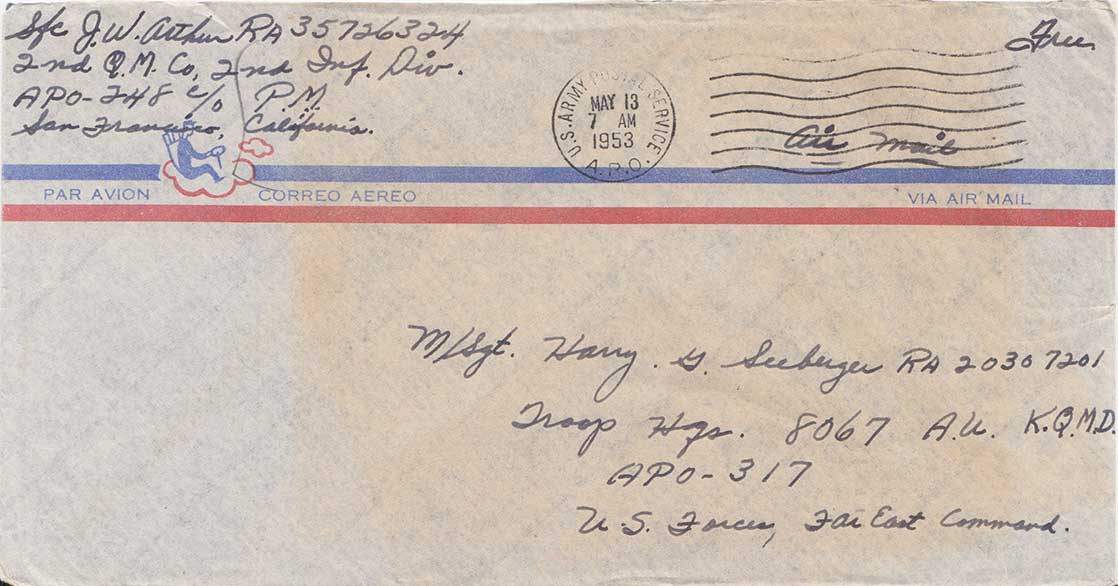 Sfc J.W. Arthur RA 35726324
2-nd Q.M. Co, 2-nd Inf. Div.
APO-248 c/o P.M.
San Francisco, California.
Free
U.S. ARMY POSTAL SERVICE
MAY 13
7 AM
1953
A.P.O.
Air Mail
PAR AVION CORREO AEREO VIA AIR MAIL
M/Sgt. Harry. G. Seeberger RA 20307201
Troop Hqs. 8067 A.U. K.Q.M.D.
APO-317
U.S. Forces, Far East Command.